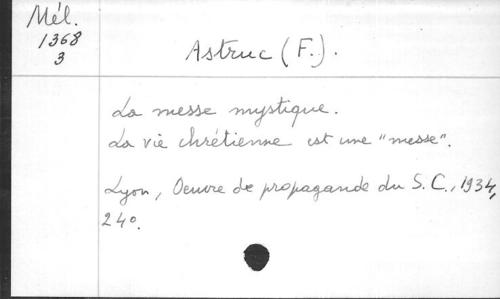 Mél.
1368
3
Astruc (F.).
La messe mystique.
La vie chrétienne est une "messe".
Lyon, Oeuvre de propagande du S.C., 1934,
24°.